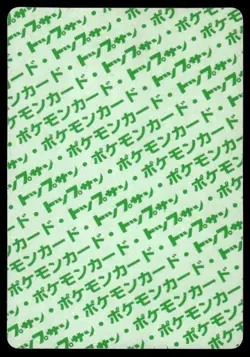 トップサン・
ポケモンカード・
トップサン・ポケモンカード・
ポケモンカード・トップサン・
トップサン・ポケモンカード・
ポケモンカード・トップサン・
トップサン・ポケモンカード・
ポケモンカード・トップサン・
トップサン・ポケモンカード・
ポケモンカード・トップサン・
トップサン・ポケモンカード・
ポケモンカード・
トップサン・